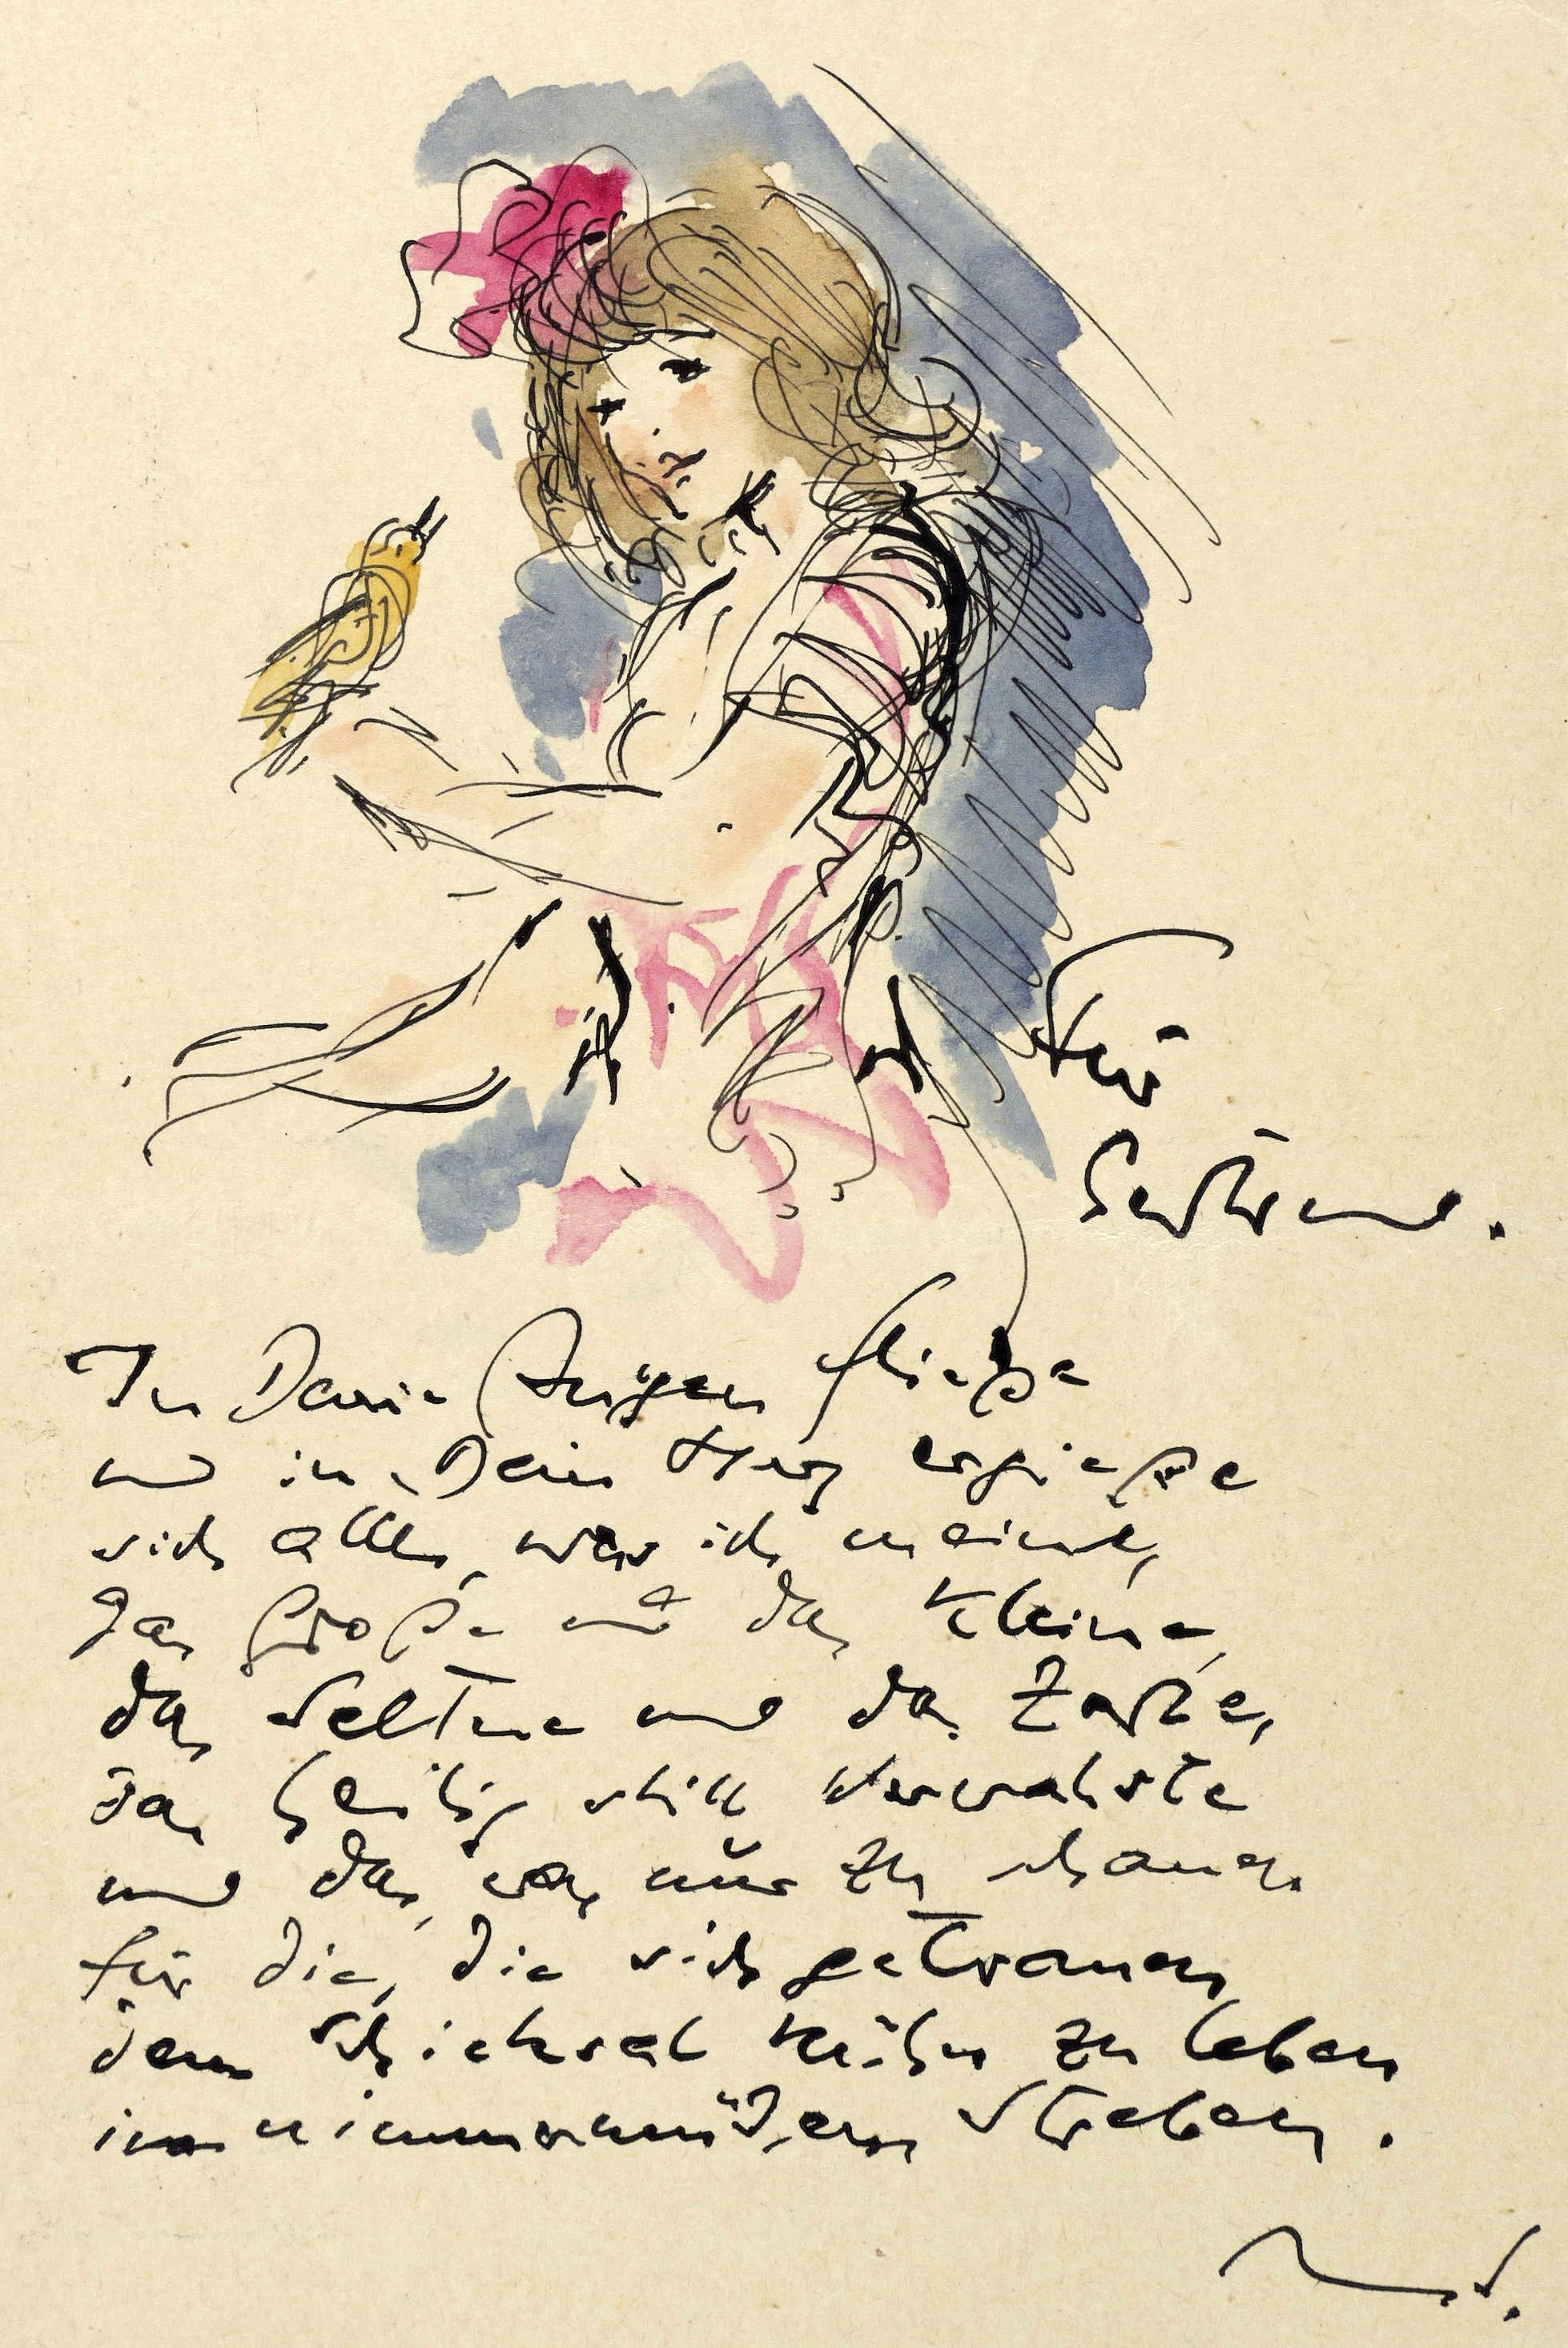 Für
Gertrud.
In Deine Augen fließe
und in Dein Herz ergieße
sich alles, was ich meine,
das Große und das Kleine,
das Seltene und das Zarte,
das heilig still Verwahrte
und das, was nur zu schauen
für die, die sich getrauen,
dem Schicksal kühn zu leben
in nimmermüdem Streben.